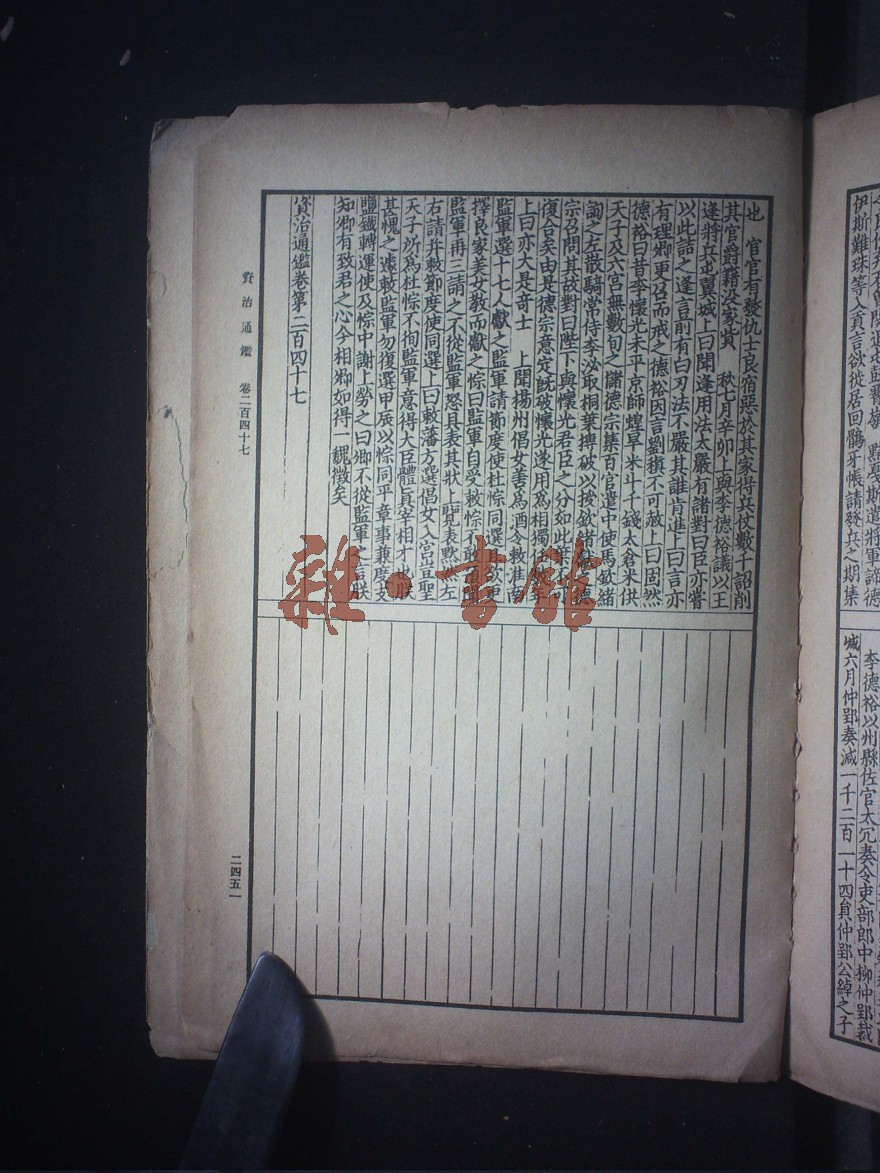 之
李德裕以州縣佐官太宂奏令吏部郎中柳仲郢裁
伊斯難珠等入貢言欲徙居回鶻牙帳請發兵之期集
減六月仲郢奏減一千二百一十四員仲郢公綽之子
也　宦官有發仇士良宿惡於其家得兵仗數千詔削
其官爵籍沒家貲　秋七月辛卯上與李德裕議以王
逢將兵屯翼城上曰聞逢用法太嚴有諸對曰臣亦嘗
以此詰之逢言前有白刃法不嚴其誰肯進上曰言亦
有理卿更召而戒之德裕因言劉稹不可赦上曰固然
德裕曰昔李懷光未平京師蝗旱米斗千錢太倉米供
天子及六宮無數旬之儲德宗集百官遣中使馬欽緒
詢之左散騎常侍李泌取桐葉摶破以授欽緒
宗召問其故對曰陛下與懷光君臣之分如此葉不可
復合矣由是德宗意定旣破懷光遂用爲相獨
上曰亦大是奇士　上聞揚州倡女善爲酒令敕淮南
監軍選十七人獻之監軍請節度使杜悰同選且欲更
擇良家美女敎而獻之悰曰監軍自受敕悰不敢
監軍再三請之不從監軍怒具表其狀上覽表默然左
右請幷敕節度使同選上曰敕藩方選倡女入宮豈聖
天子所爲杜悰不徇監軍意得大臣體眞宰相才也朕
甚愧之遽敕監軍勿復選甲辰以悰同平章事兼度支
鹽鐵轉運使及悰中謝上勞之曰卿不從監軍之言朕
知卿有致君之心今相卿如得一魏徵矣
資治通鑑卷第二百四十七
資治通鑑　卷二百四十七
二四五一
雜·書館